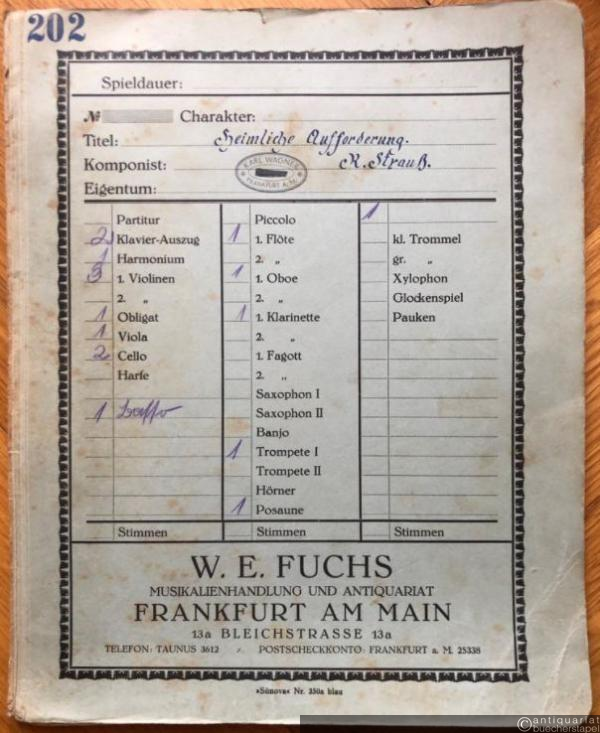 202
Spieldauer:
№ Charakter:
Titel: Heimliche Aufforderung.
Komponist: R. Strauß.
KARL WAGNER
FRANKFURT A. M.
Eigentum:
Partitur
2 Klavier-Auszug
1 Harmonium
3 1. Violinen
2. „
1 Obligat
1 Viola
2 Cello
Harfe
1 Basso
Stimmen
Piccolo
1 1. Flöte
2. „
1 1. Oboe
2. „
1 1. Klarinette
2. „
1. Fagott
2. „
Saxophon I
Saxophon II
Banjo
1 Trompete I
Trompete II
Hörner
1 Posaune
Stimmen
1
kl. Trommel
gr. „
Xylophon
Glockenspiel
Pauken
Stimmen
W. E. FUCHS
MUSIKALIENHANDLUNG UND ANTIQUARIAT
FRANKFURT AM MAIN
13a BLEICHSTRASSE 13a
TELEFON: TAUNUS 3612 POSTSCHECKKONTO: FRANKFURT a. M. 25338
»Sünova« Nr. 350a blau
antiquariat
buecherstapel